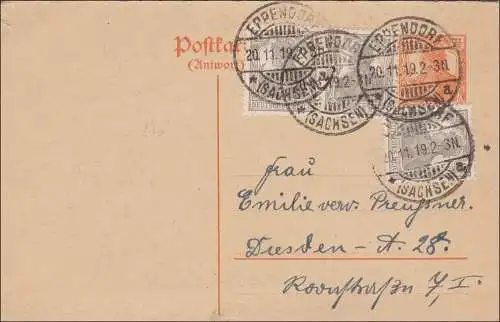 Postkar
(Antwor
EPPENDORF
20.11.19.2-3N.
* (SACHSEN) a.
EPPENDORF
19.2-3N.
* (SACHSEN) a.
EPPENDORF
20.11.19.2-3N.
(SACHSEN) a.
20.11.19.2-3N.
* (SACHSEN) a.
Frau
Emilie verw. Preußner.
Dresden - A. 28.
Roonstraße 7, I.